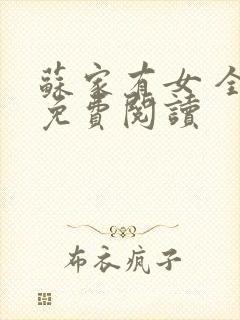 蘇家有女 全
免費閱讀
布衣疯子